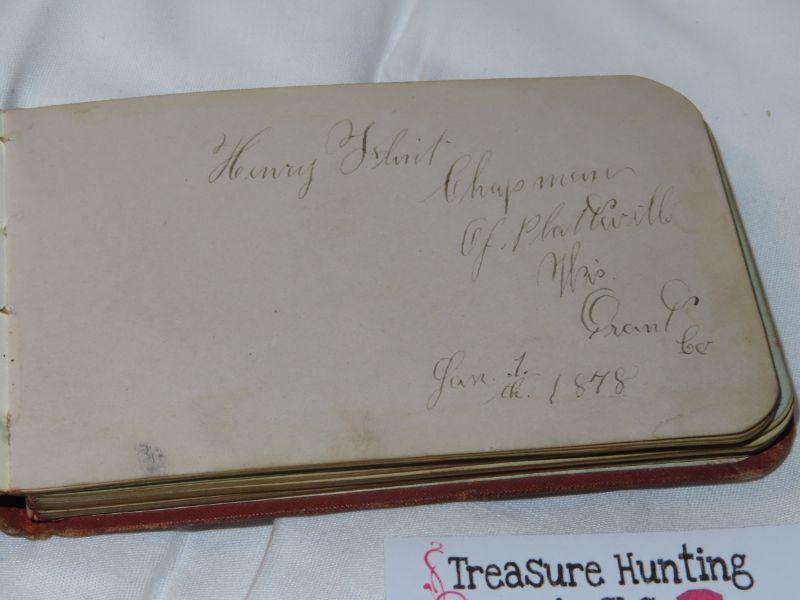 Henry
Chapman
Of. Plattevill
Wis.
Grant
Co
Jan. 1.
th. 1878
Treasure Hunting